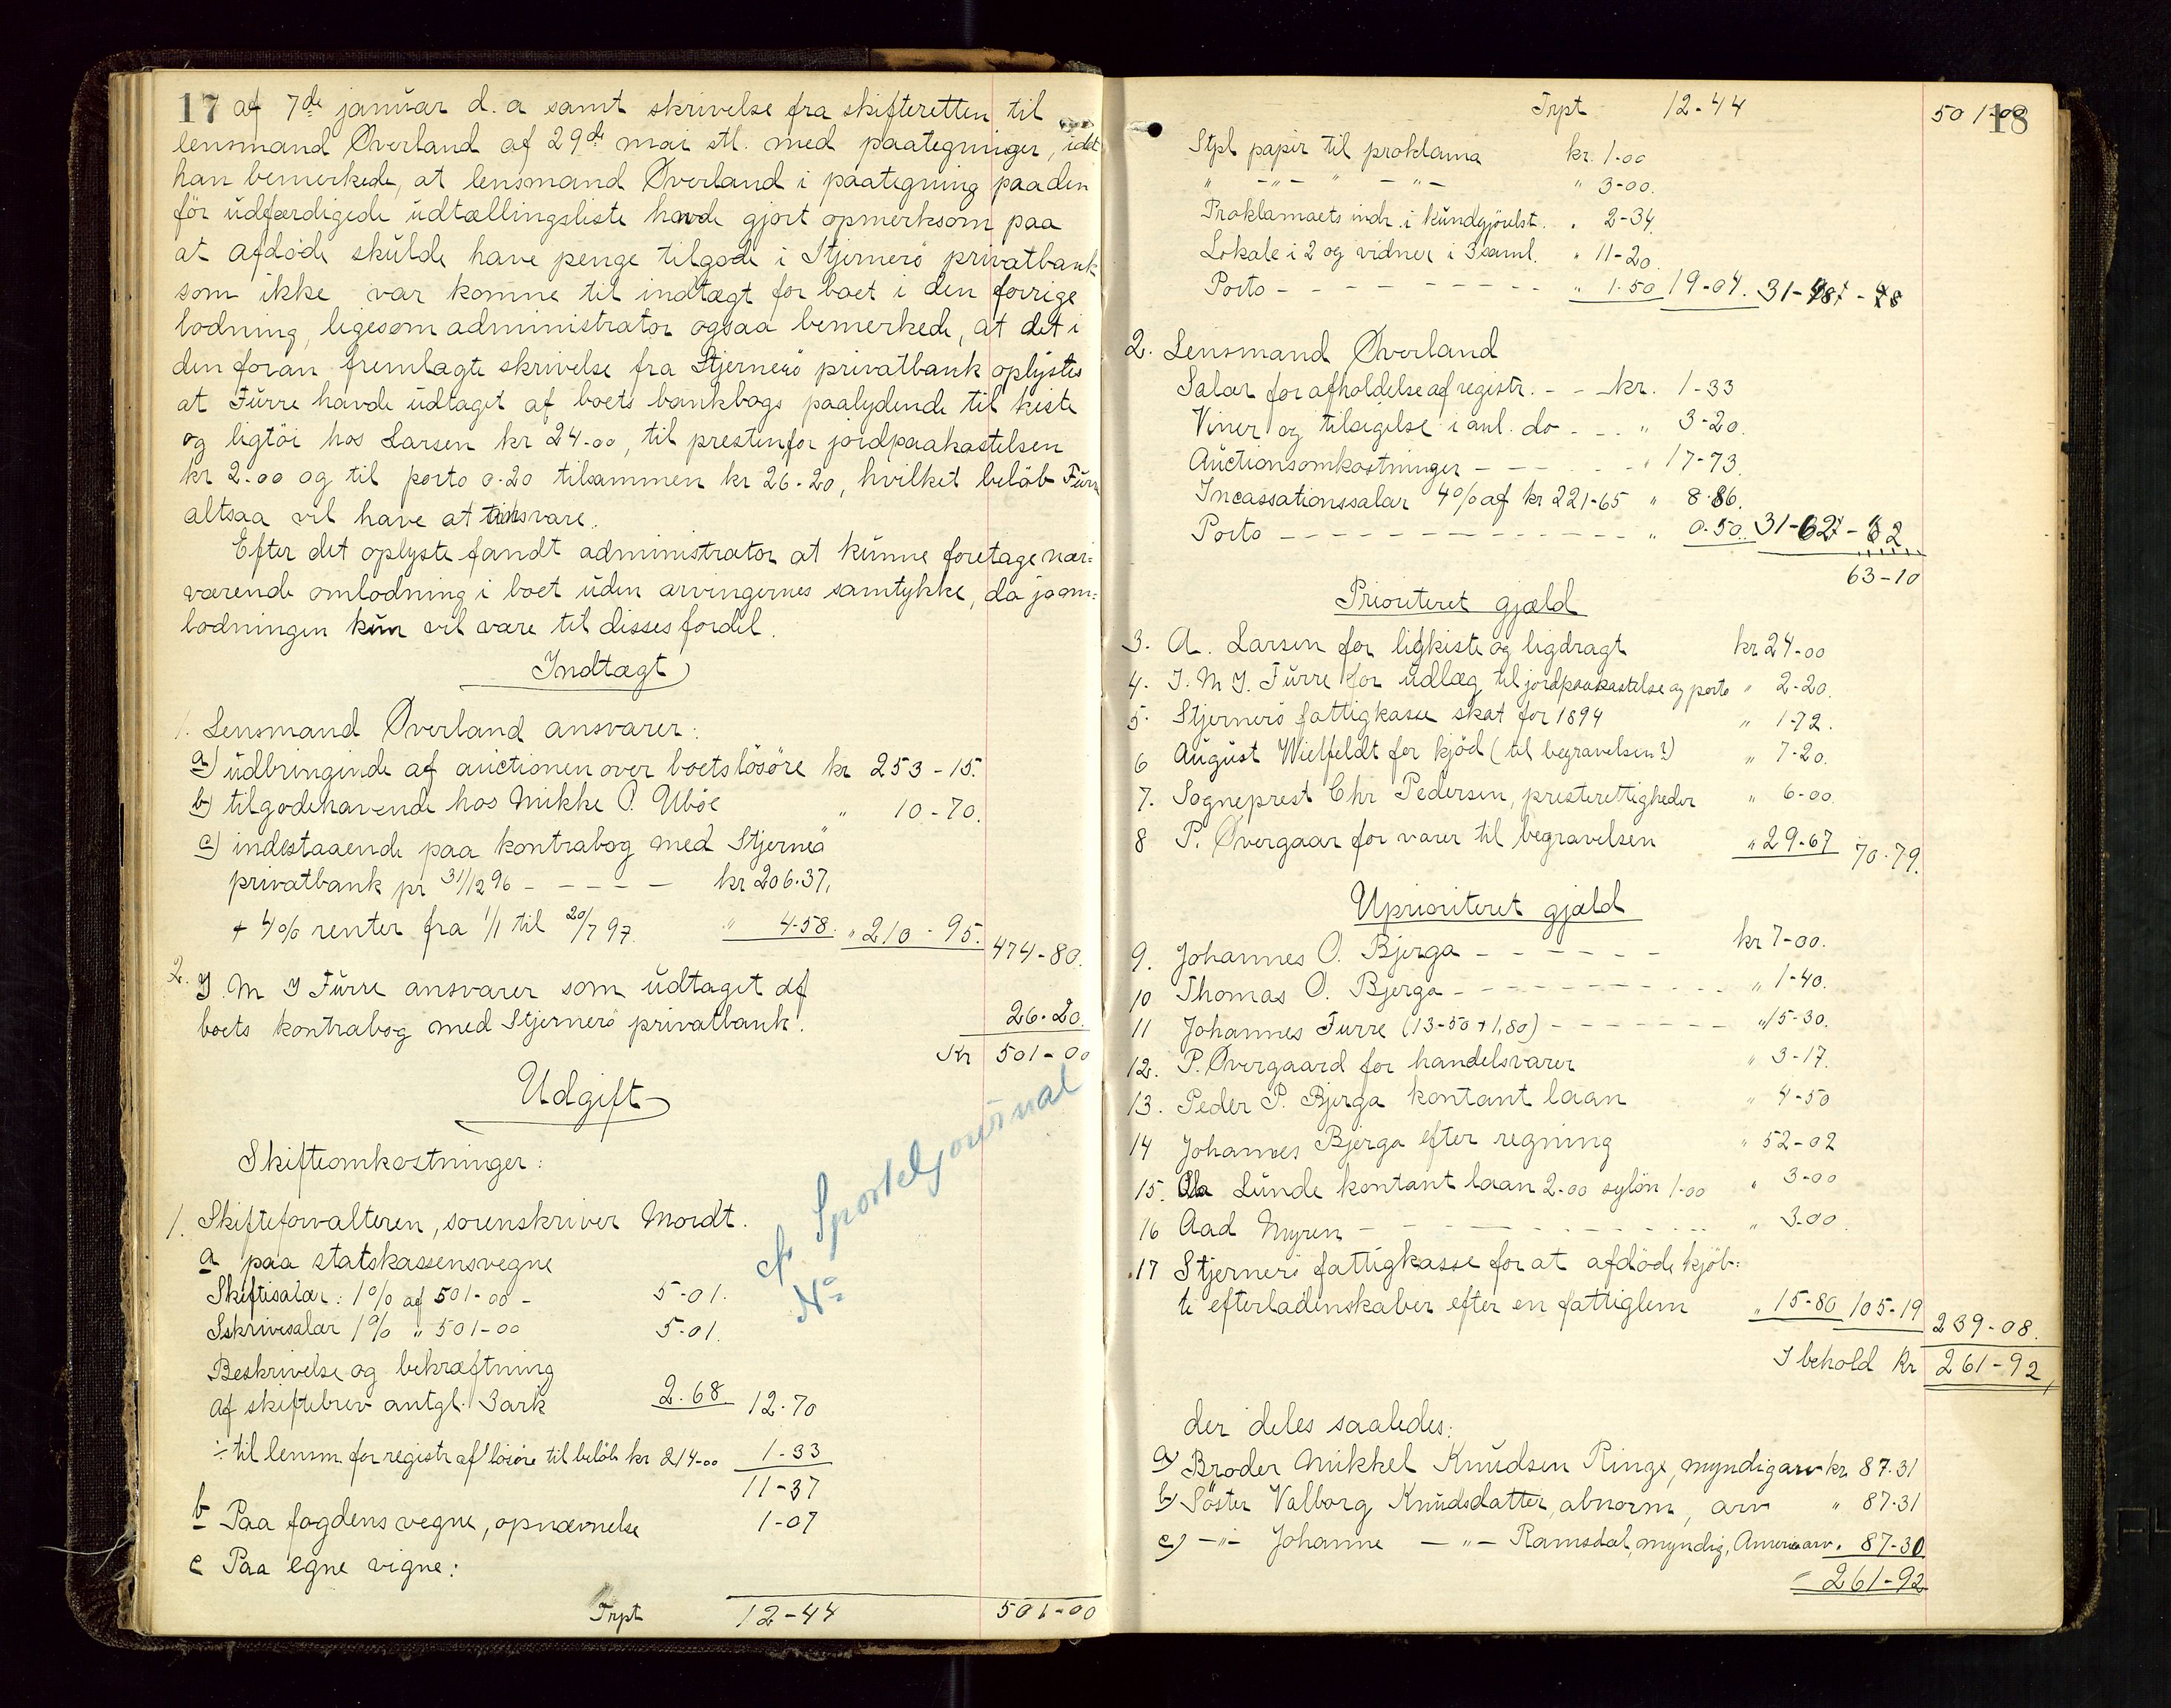 17 af 7de januar d. a samt skrivelse fra skifteretten til
lensmand Øverland af 29de mai stl. med paategninger, idet
han bemerkede, at lensmand Øverland i paategning paa den
før udfærdigede udtællingsliste havde gjort opmerksom paa
at afdøde skulde have penge tilgode i Stjernerö privatbank
som ikke var komne til indtægt for boet i den forrige
lodning, ligesom administrator ogsaa bemerkede, at det i
den foran fremlagte skrivelse fra Stjernerö privatbank oplystes
at Furre havde udtaget af boets bankbogs paalydende til kiste
og ligtöi hos Larsen kr 24-00, til presten for jordpaakastelsen
kr 2-00 og til porto 0-20 tilsammen kr 26-20, hvilket belöb Furre
altsaa vil have at svare.
Efter det oplyste fandt administrator at kunne foretage nær-
værende omlodning i boet uden arvingernes samtykke, da jo om-
lodningen kun vil være til disses fordel.
Indtægt
1. Lensmand Øverland ansvarer:
a) udbringende af auctionen over boets lösöre kr 253-15.
b) tilgodehavende hos Mikke O. Uböe " 10-70.
c) indestaaende paa kontrabog med Stjernerö
privatbank pr 31/12 96 - - - - - kr 206.37,
+ 4% renter fra 1/1 til 20/7 97. " 4-58. " 210-95. 474-80.
2. J. M J Furre ansvarer som udtaget af
boets kontrabog med Stjernerö privatbank. 26.20.
Kr 501-00
Udgift
Skifteomkostninger:
1. Skifteforvalteren, sorenskriver Mordt.
a paa statskassens vegne
Skiftesalær: 1% af 501-00 - 5-01.
Sskrivesalær 1% " 501-00 5-01.
Beskrivelse og bekræftning
af skiftebrev antgl. 3 ark 2.68 12.70
÷ til lensm for registr af lösöre til belöb kr 214-00 1-33
11-37
b Paa fogdens vegne, opnævnelse 1-07
c Paa egne vegne:
Trpt 12-44 501-00
cfr Sporteljournal
No
18
Trpt 12-44 501-00
Stpl papir til proklama kr. 1-00
" -"- " -"- " 3-00.
Proklamaets indr. i kundgjörelst. " 2-34.
Lokale i 2 og vidner i 3 saml. " 11-20.
Porto - - - - - - - - - " 1.50 19-04. 31-48
2. Lensmand Øverland
Salær for afholdelse af registr. - - kr. 1-33
Viner og tilsigelse i anl. do - - - " 3-20.
Auctionsomkostninger - - - - - " 17-73.
Incassationssalær 4% af kr 221-65 " 8.86.
Porto - - - - - - - - - - - - " 0.50. 31-62
63-10
Prioriteret gjæld
3. A. Larsen for ligkiste og ligdragt kr 24-00
4. J. M J. Furre for udlæg til jordpaakastelse og porto " 2-20.
5. Stjernerö fattigkasse skat for 1894 " 1-72.
6 August Wielfeldt for kjöd (til begravelsen?) " 7-20.
7. Sogneprest Chr Pedersen, presterettigheder " 6-00.
8 P. Øvergaar for varer til begravelsen " 29-67 70.79.
Uprioriteret gjæld
9. Johannes O. Bjerga - - - - - - kr 7-00.
10 Thomas O. Bjerga - - - - - - - - - - " 1-40.
11 Johannes Furre (13-50 + 1,80) - - - - - - - " 15-30.
12. P. Øvergaard for handelsvarer " 3-17.
13. Peder P. Bjerga kontant laan " 4-50
14 Johannes Bjerga efter regning " 52-02
15. Ola Lunde kontant laan 2.00 sylön 1-00 " 3-00
16 Aad Myren - - - - - - - - - - - " 3-00.
17 Stjernerö fattigkasse for at afdöde kjöb-
te efterladenskaber efter en fattiglem " 15-80 105-19 239-08.
I behold Kr 261-92
der deles saaledes:
a) Broder Mikkel Knudsen Ringe, myndig arv kr. 87.31
b) Söster Valborg Knudsdatter, abnorm, arv " 87.31
c) -"- Johanne -"- Ramsdal, myndig, Amerika arv. " 87-30
" 261-92